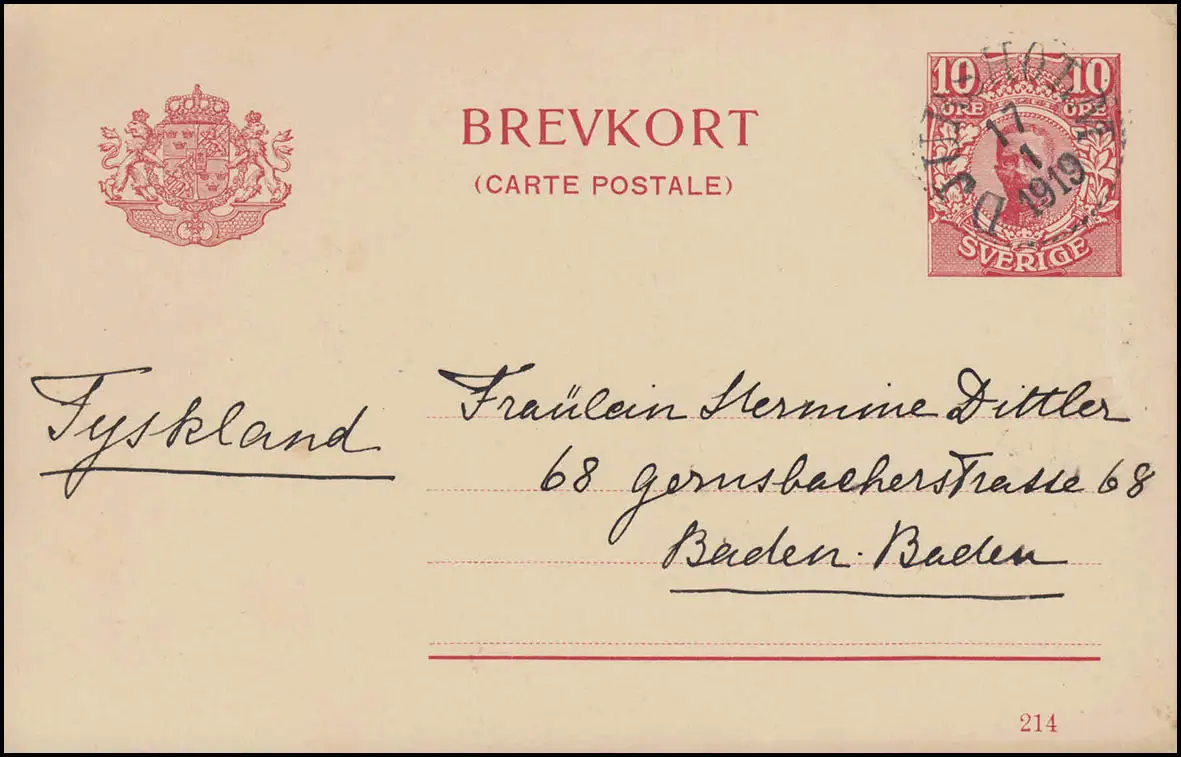 BREVKORT
(CARTE POSTALE)
10 10
ÖRE ÖRE
SVERIGE
STOCKHOLM
17
1
1919
D
Tyskland
Fräulein Hermine Dittler
68 Gernsbacherstrasse 68
Baden-Baden
214